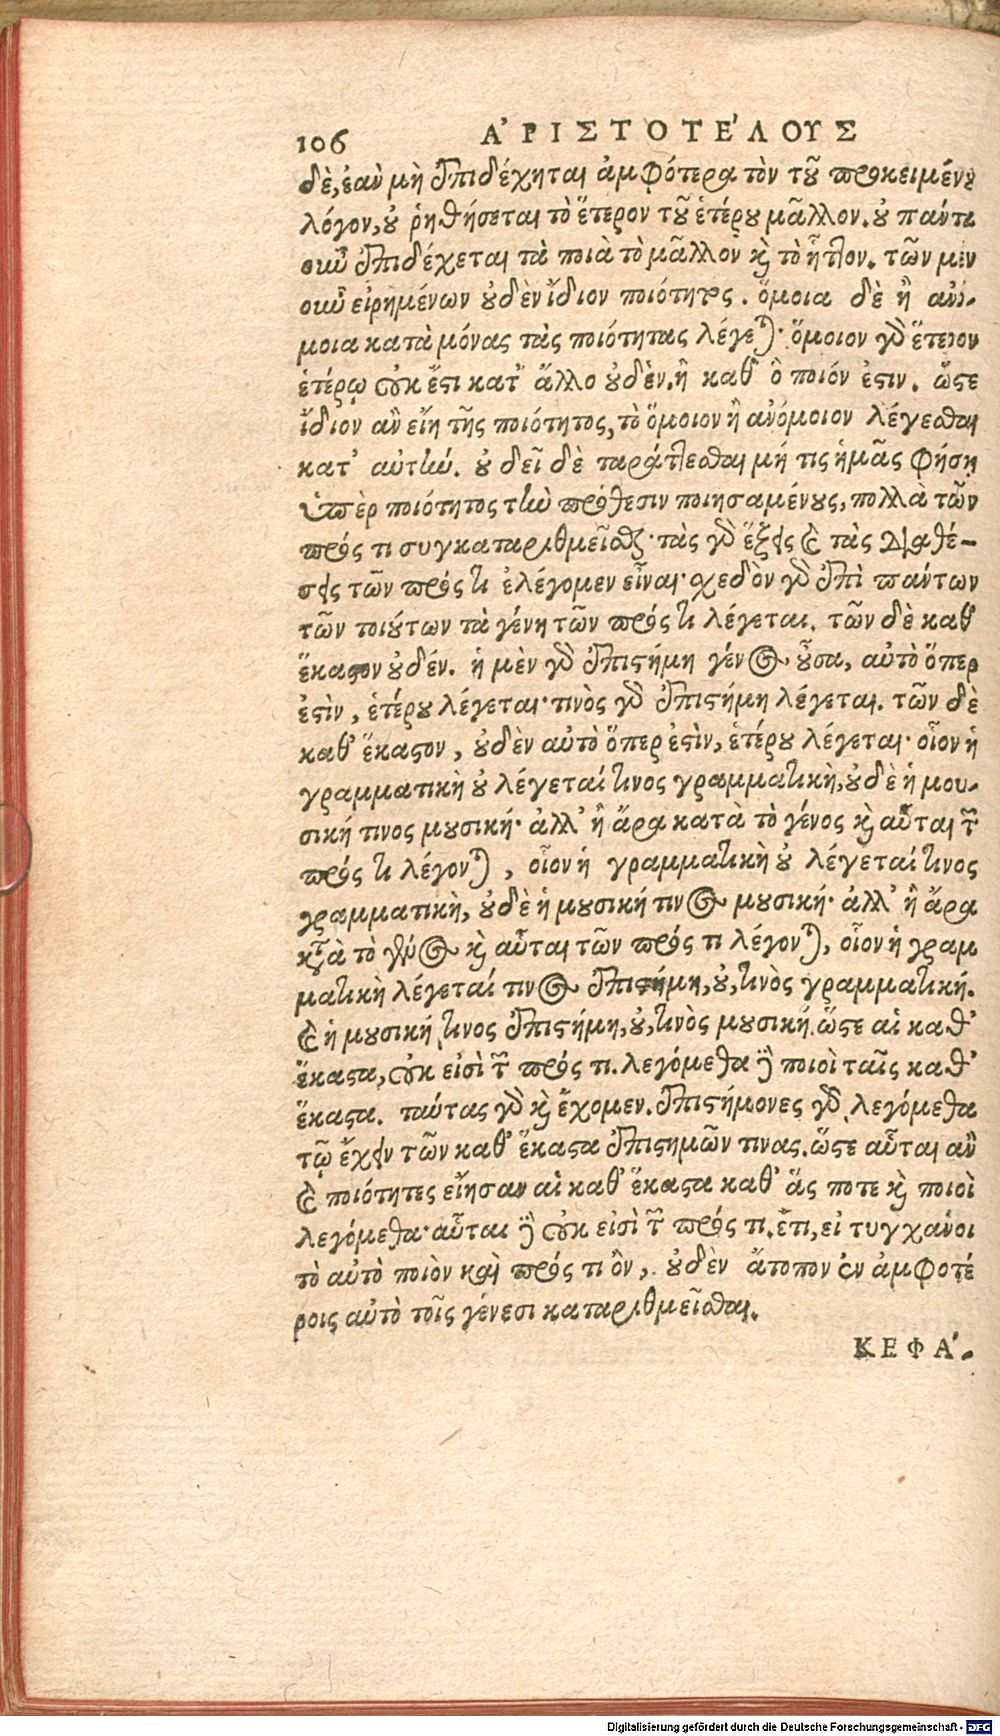 106 ἈΡΙΣΤΟΤΕΛΟΥΣ
δὲ, ἐὰν μὴ ἐπιδέχηται ἀμφότερα τὸν τοῦ προκειμένου
λόγον, οὐ ῥηθήσεται τὸ ἕτερον τοῦ ἑτέρου μᾶλλον. οὐ πάντα
οὖν ἐπιδέχεται τὰ ποιὰ τὸ μᾶλλον καὶ τὸ ἧττον. τῶν μὲν
οὖν εἰρημένων οὐδὲν ἴδιον ποιότητος. ὅμοια δὲ ἢ ἀνό-
μοια κατὰ μόνας τὰς ποιότητας λέγεται· ὅμοιον γὰρ ἕτερον
ἑτέρῳ οὐκ ἔστι κατ᾽ ἄλλο οὐδὲν, ἢ καθ᾽ ὃ ποιόν ἐστιν. ὥστε
ἴδιον ἂν εἴη τῆς ποιότητος, τὸ ὅμοιον ἢ ἀνόμοιον λέγεσθαι
κατ᾽ αὐτήν. οὐ δεῖ δὲ ταράττεσθαι μή τις ἡμᾶς φήσῃ
ὑπὲρ ποιότητος τὴν πρόθεσιν ποιησαμένους, πολλὰ τῶν
πρός τι συγκαταριθμεῖσθαι· τὰς γὰρ ἕξεις καὶ τὰς διαθέ-
σεις τῶν πρός τι ἐλέγομεν εἶναι· σχεδὸν γὰρ ἐπὶ πάντων
τῶν τοιούτων τὰ γένη τῶν πρός τι λέγεται. τῶν δὲ καθ᾽
ἕκαστον οὐδέν. ἡ μὲν γὰρ ἐπιστήμη γένος οὖσα, αὐτὸ ὅπερ
ἐστὶν, ἑτέρου λέγεται· τινὸς γὰρ ἐπιστήμη λέγεται. τῶν δὲ
καθ᾽ ἕκαστον, οὐδὲν αὐτὸ ὅπερ ἐστὶν, ἑτέρου λέγεται· οἷον ἡ
γραμματικὴ οὐ λέγεταί τινος γραμματικὴ, οὐδὲ ἡ μου-
σική τινος μουσική· ἀλλ᾽ ἢ ἄρα κατὰ τὸ γένος καὶ αὗται τῶν
πρός τι λέγονται, οἷον ἡ γραμματικὴ οὐ λέγεταί τινος
γραμματικὴ, οὐδὲ ἡ μουσική τινος μουσική· ἀλλ᾽ ἢ ἄρα
κατὰ τὸ γένος καὶ αὗται τῶν πρός τι λέγονται, οἷον ἡ γραμ
ματικὴ λέγεταί τινος ἐπιστήμη, οὐ, τινὸς γραμματική.
καὶ ἡ μουσική τινος ἐπιστήμη, οὐ, τινὸς μουσική. ὥστε αἱ καθ᾽
ἕκαστα, οὐκ εἰσὶ τῶν πρός τι. λεγόμεθα δὲ ποιοὶ ταῖς καθ᾽
ἕκαστα. ταύτας γὰρ καὶ ἔχομεν. ἐπιστήμονες γὰρ λεγόμεθα
τῷ ἔχειν τῶν καθ᾽ ἕκαστα ἐπιστημῶν τινας. ὥστε αὗται ἂν
καὶ ποιότητες εἴησαν αἱ καθ᾽ ἕκαστα καθ᾽ ἅς ποτε καὶ ποιοὶ
λεγόμεθα· αὗται δὲ οὐκ εἰσὶ τῶν πρός τι. ἔτι, εἰ τυγχάνοι
τὸ αὐτὸ ποιὸν καὶ πρός τι ὂν, οὐδὲν ἄτοπον ἐν ἀμφοτέ
ροις αὐτὸ τοῖς γένεσι καταριθμεῖσθαι.
ΚΕΦΆ-
Digitalisierung gefördert durch die Deutsche Forschungsgemeinschaft - DFG